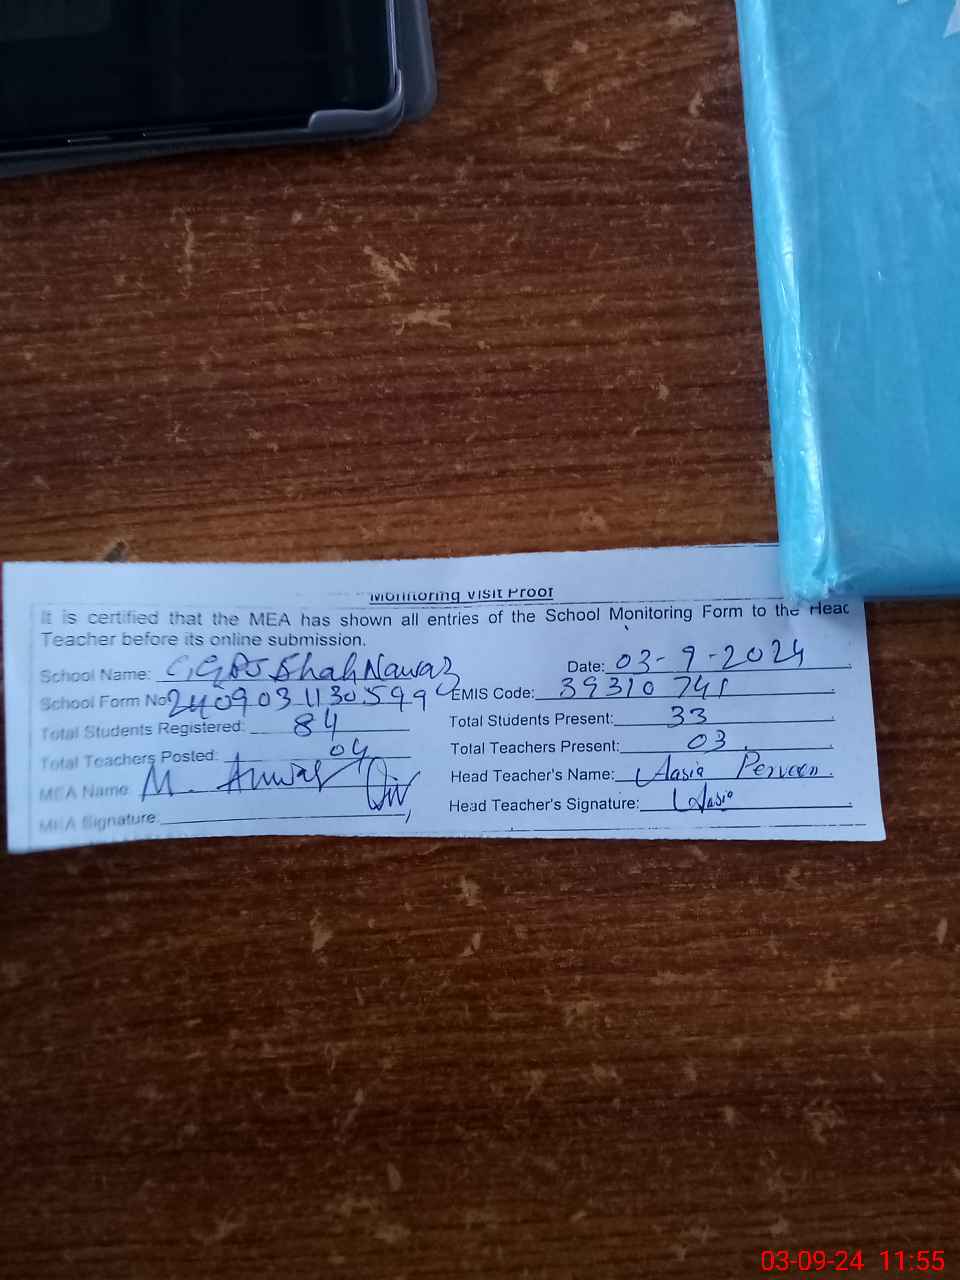 Monitoring Visit Proof
It is certified that the MEA has shown all entries of the School Monitoring Form to the Head
Teacher before its online submission.
School Name: GGPS Shah Nawaz Date: 03-9-2024
School Form No EMIS Code: 39310741
Total Students Registered: 84 Total Students Present: 33
Total Teachers Posted: 04 Total Teachers Present: 03
MEA Name: M. Anwar Head Teacher's Name: Aasia Perveen
MEA Signature: Head Teacher's Signature: Aasia
03-09-24 11:55